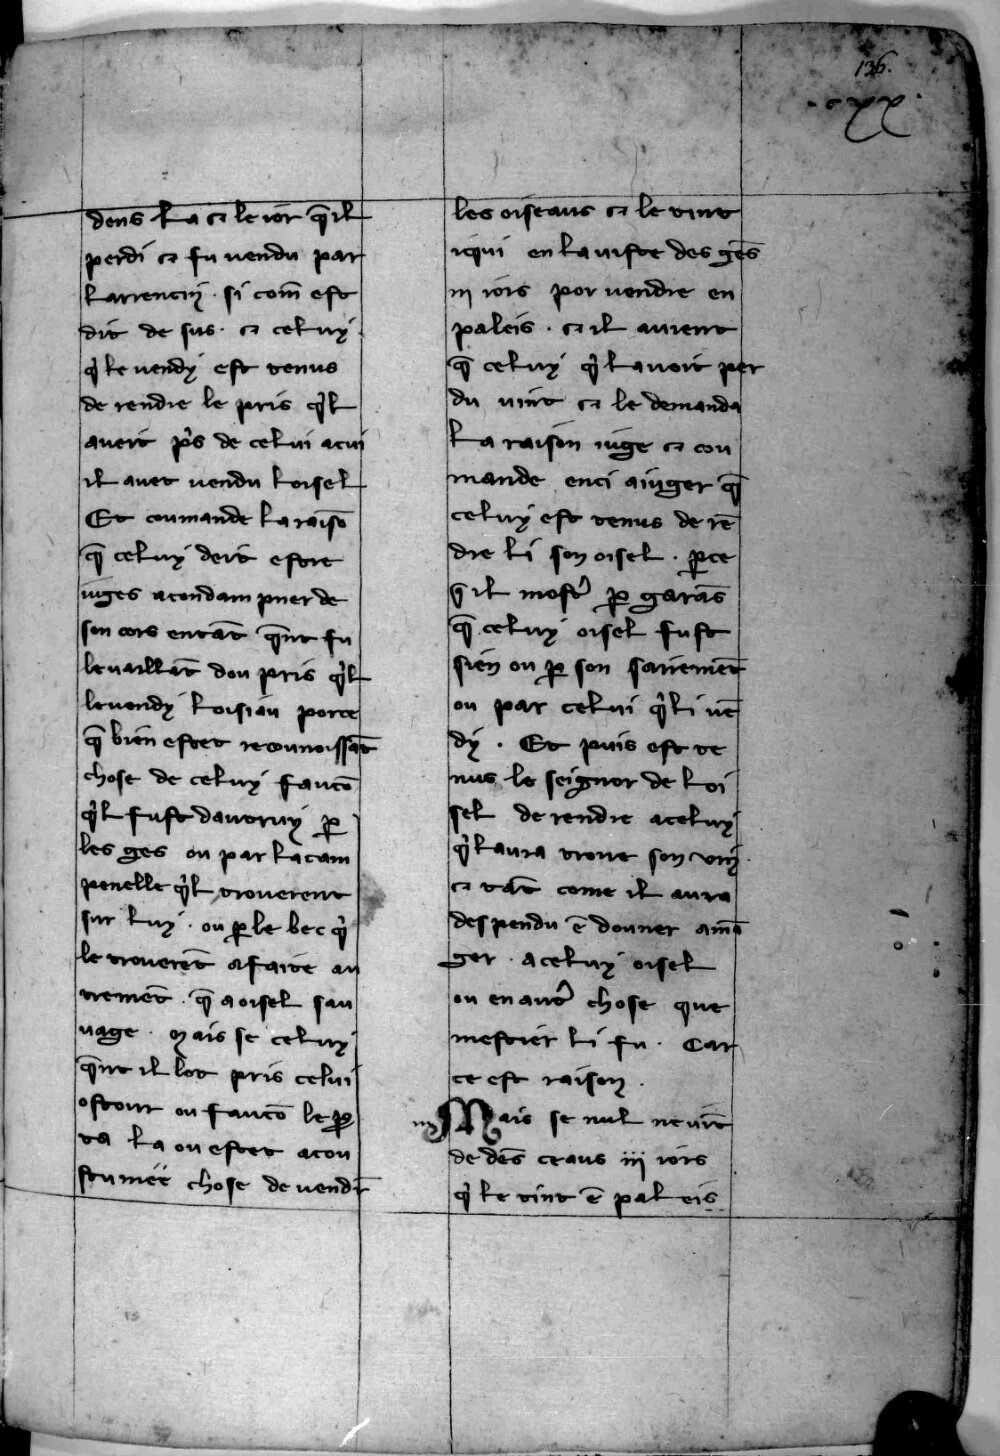 136.
.cxx.
dens la ⁊ le ior q̃ il
perdi ⁊ fu uendu par
larrencin · si com̃ est
dit de sus · ⁊ celuy
qͥ le uendy est tenus
de rendre le pris qͥl
aueit pͥs de celui a cui
il auet uendu loisel
Et coumande la raisõ
q̃ celuy deit estre
iuges a condampner de
son cors entãt q̃nt fu
le uaillãt dou pris qͥl
le uendy loisiau por ce
q̃ bien estet reconoissãt
chose de celuy faucõ
qͥl fust dautruy ꝑ
les ges ou par la cam
penelle qͥl trouerent
sur luy · ou ꝑ le bec qͥ
le trouerẽt afaite au
tremẽt · q̃ a oisel sau
uage · Mais se celuy
q̃nt il lot pris celui
ostour ou faucõ le ꝑ
ta la ou estet acou
stumee chose de uendr̃
les oiseaus ⁊ le tint
iqui en la uiste des gẽs
iij iors por uendre en
paleis · ⁊ il auient
q̃ celuy qͥ lauoit per
du uint ⁊ le demanda
la raison iuge ⁊ cou
mande enci a iuger q̃
celuy est tenus de rẽ
dre li son oisel · ꝑ ce
q̃ il mostͬ ꝑ garãs
q̃ celuy oisel fust
sien ou ꝑ son sairemẽt
ou par celui qͥ li uẽ
dy · Et puis est te
nus le seignor de loi
sel de rendre a celuy
qͥ laura troue son oisel
⁊ tãt come il aura
despendu ẽ douner a mẽ
ger · a celuy oisel
ou en autͬ chose que
mestier li fu · Car
ce est raison ·
Mais se nul ne uĩt
de dẽs ceaus iij iors
qͥ le tint ẽ paleis